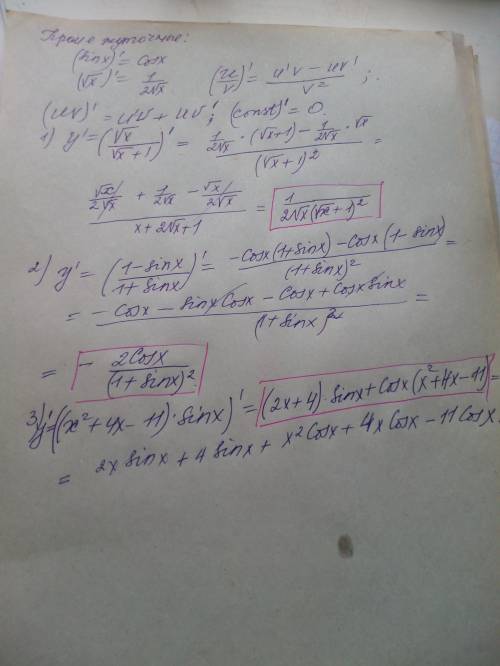 Промежуточные:
(sinx)' = Cosx
(√x)' = 1/(2√x)   (u/v)' = (u'v - uv')/v² ;
(uv)' = u'v + uv' ; (const)' = 0.
1) y' = (√x/(√x+1))' = (1/(2√x) · (√x+1) - 1/(2√x) · √x)/(√x+1)² =
(√x/(2√x) + 1/(2√x) - √x/(2√x))/(x+2√x+1) = 1/(2√x(√x+1)²)
2) y' = ((1-sinx)/(1+sinx))' = (-Cosx(1+sinx) - Cosx(1-sinx))/(1+sinx)² =
= (-Cosx - sinxCosx - Cosx + Cosx sinx)/(1+sinx)² =
= - 2Cosx/(1+sinx)²
3) y' = ((x²+4x-11)·sinx)' = (2x+4)·sinx + Cosx(x²+4x-11) =
= 2x sinx + 4 sinx + x² Cosx + 4x Cosx - 11 Cosx